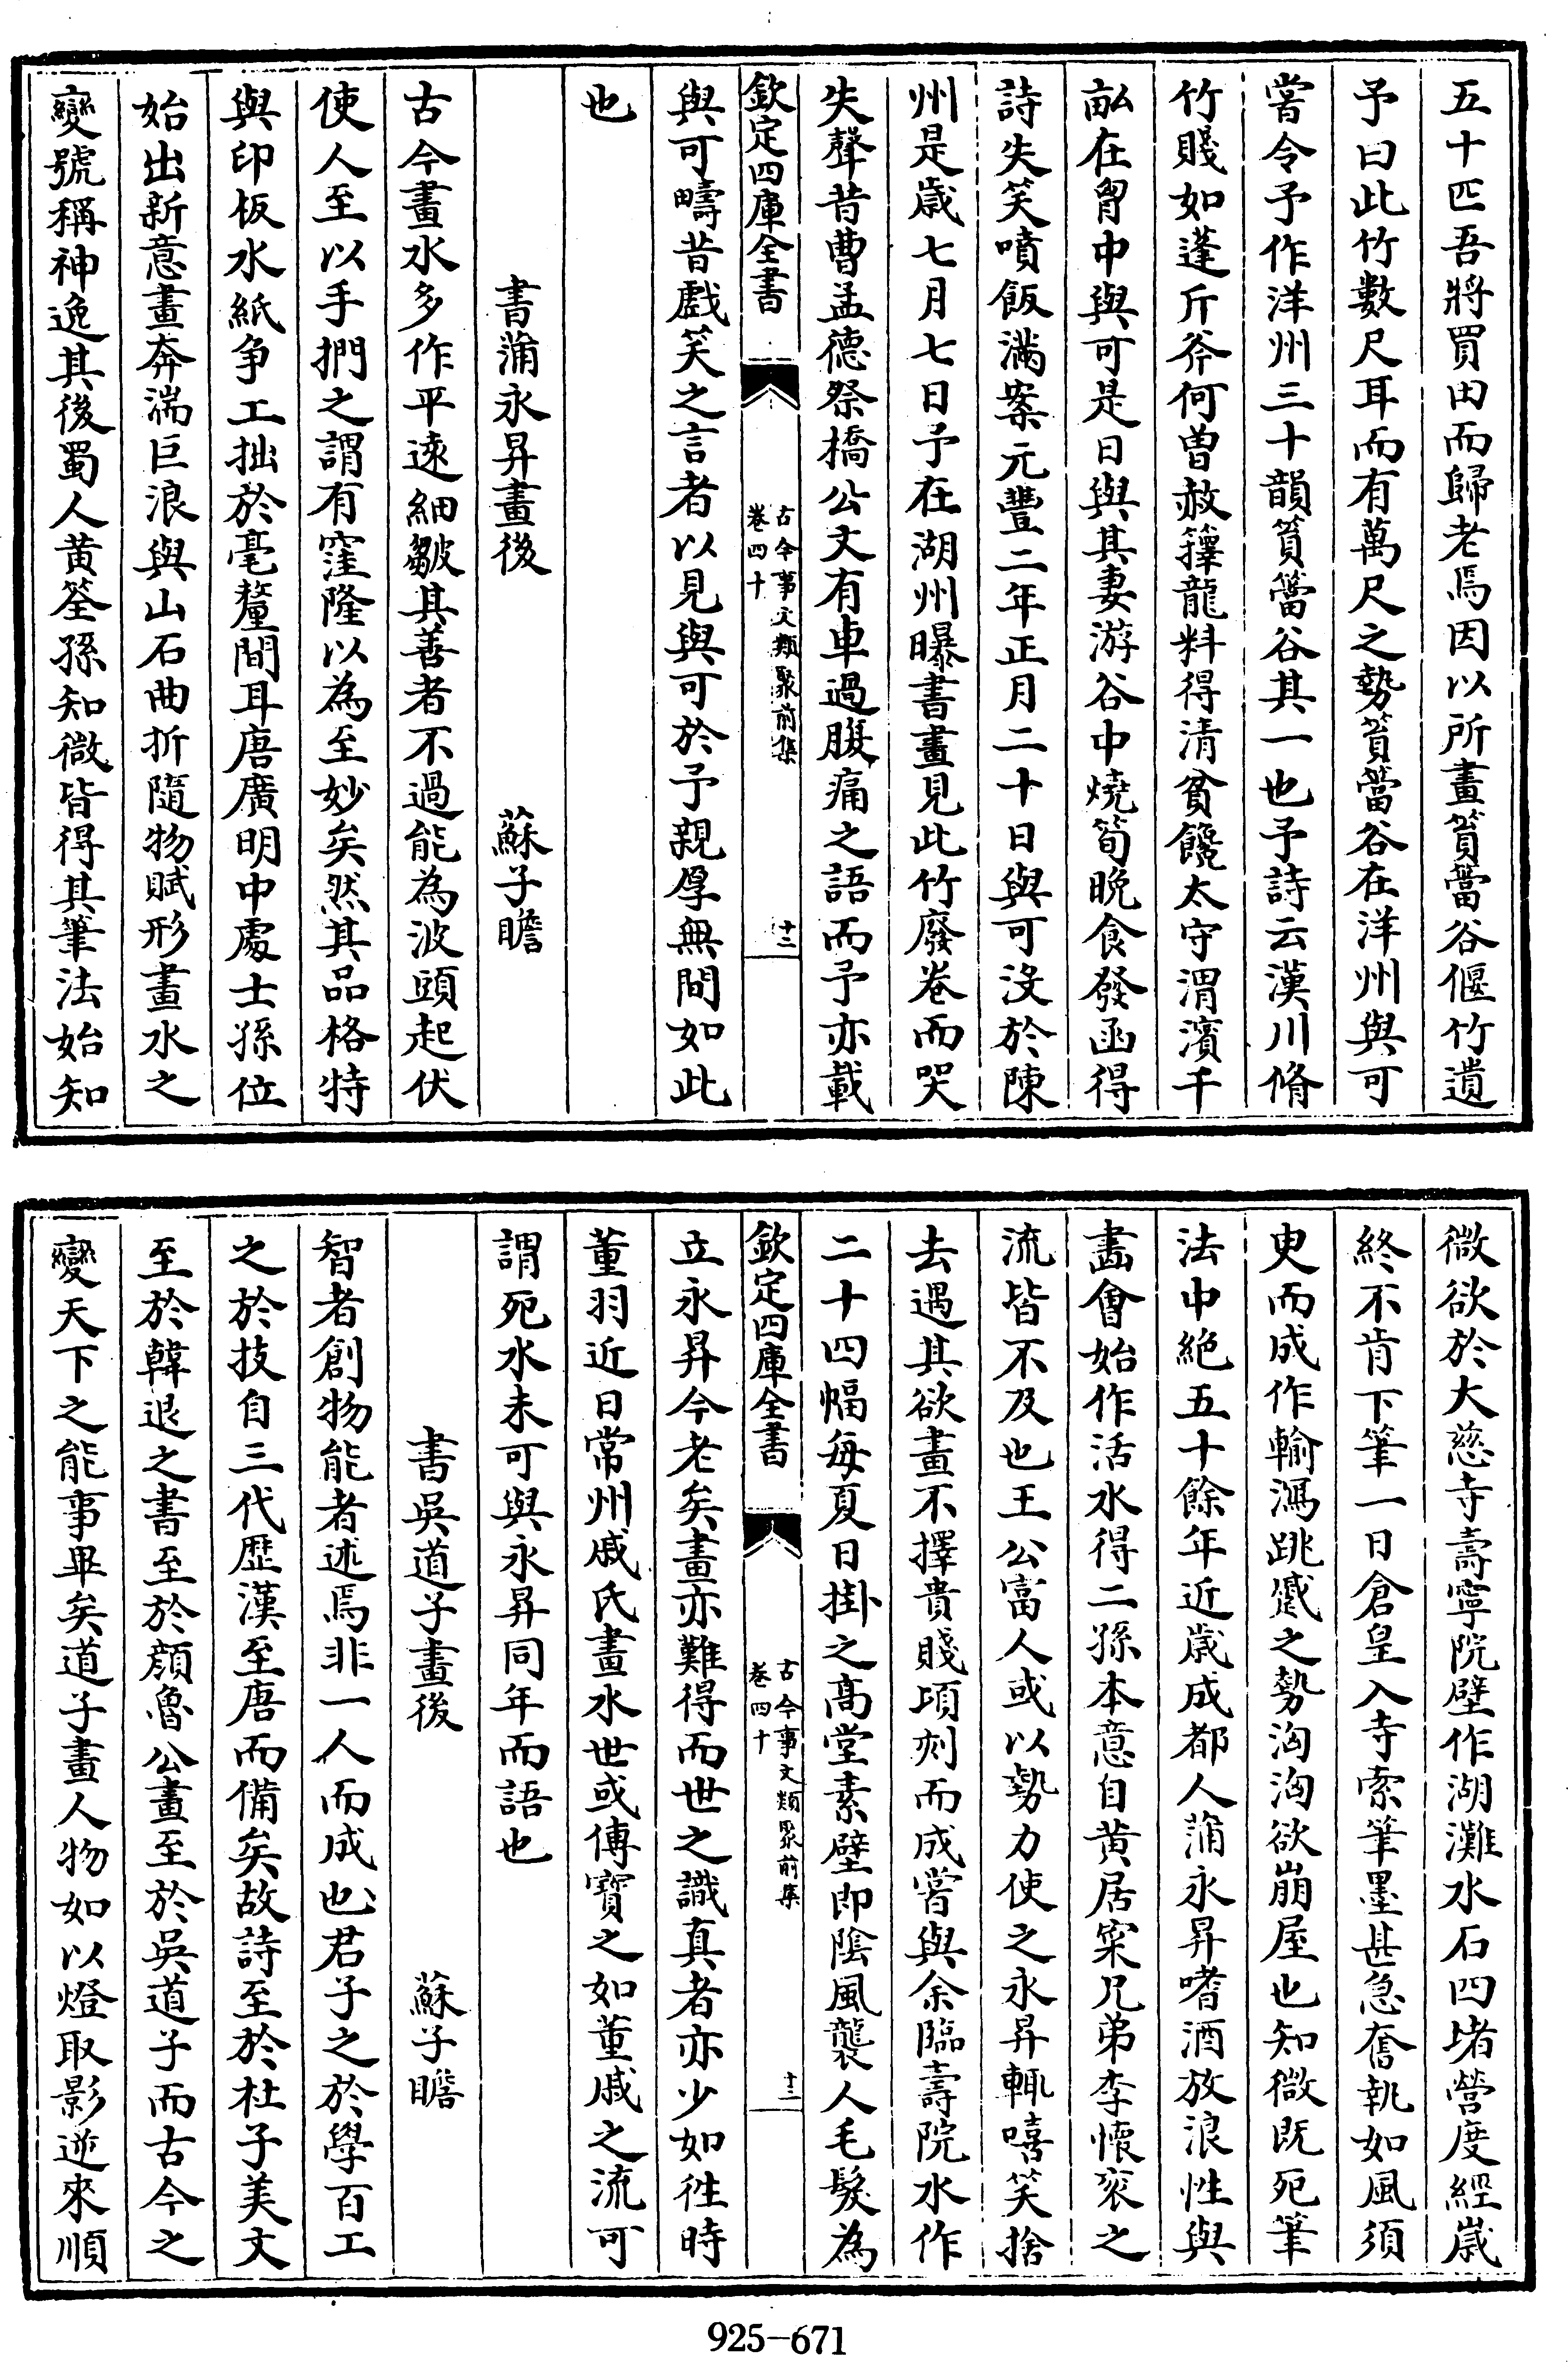 五十匹吾將買田而歸老焉因以所畫篔簹谷偃竹遺
予曰此竹數尺耳而有萬尺之勢篔簹谷在洋州與可
嘗令予作洋州三十韻篔簹谷其一也予詩云漢川脩
竹賤如蓬斤斧何曾赦籜龍料得清貧饞太守渭濱千
畝在胷中與可是日與其妻游谷中燒筍晚食發函得
詩失笑噴飯滿案元豐二年正月二十日與可沒於陳
州是歲七月七日予在湖州曝書畫見此竹廢卷而哭
失聲昔曹孟德祭橋公文有車過腹痛之語而予亦載
欽定四庫全書
古今事文類聚前集
卷四十
十二
與可疇昔戲笑之言者以見與可於予親厚無間如此
也
書蒲永昇畫後 蘇子瞻
古今畫水多作平遠細皺其善者不過能為波頭起伏
使人至以手捫之謂有窪隆以為至妙矣然其品格特
與印板水紙争工拙於毫釐間耳唐廣明中處士孫位
始出新意畫奔湍巨浪與山石曲折隨物賦形畫水之
變號稱神逸其後蜀人黄筌孫知微皆得其筆法始知
微欲於大慈寺壽寧院壁作湖灘水石四堵營度經歲
終不肯下筆一日倉皇入寺索筆墨甚急奮執如風須
㬰而成作輸瀉跳蹙之勢洶洶欲崩屋也知微既死筆
法中絶五十餘年近歲成都人蒲永昇嗜酒放浪性與
畫會始作活水得二孫本意自黄居寀兄弟李懷衮之
流皆不及也王公富人或以勢力使之永昇輒嘻笑捨
去遇其欲畫不擇貴賤頃刻而成嘗與余臨壽院水作
二十四幅每夏日掛之髙堂素壁即陰風襲人毛髮為
欽定四庫全書
古今事文類聚前集
卷四十
十三
立永昇今老矣畫亦難得而世之識真者亦少如徃時
董羽近日常州戚氏畫水世或傳寳之如董戚之流可
謂死水未可與永昇同年而語也
書吳道子畫後 蘇子瞻
智者創物能者述焉非一人而成也君子之於學百工
之於技自三代歴漢至唐而備矣故詩至於杜子美文
至於韓退之書至於顔魯公畫至於吳道子而古今之
變天下之能事畢矣道子畫人物如以燈取影逆來順
925-671